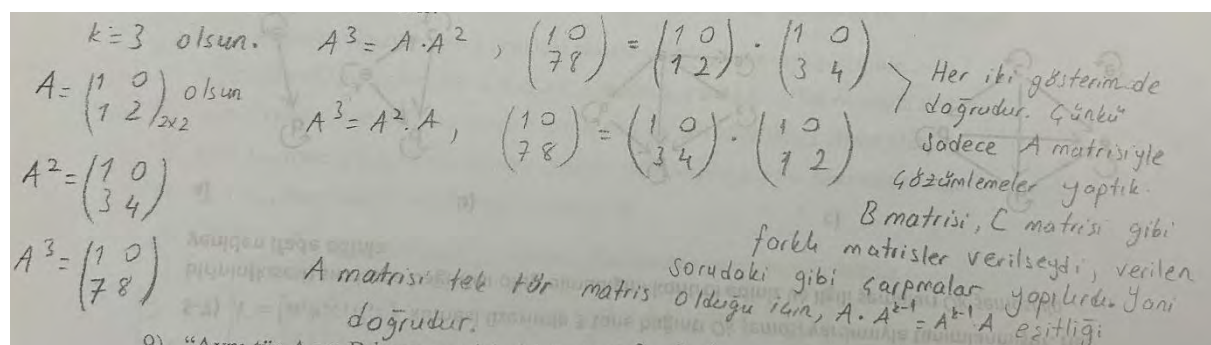 k=3 olsun. A³ = A·A², (1 0 7 8) = (1 0 1 2) · (1 0 3 4)
A = (1 0 1 2)2x2 olsun
A³ = A²·A, (1 0 7 8) = (1 0 3 4) · (1 0 1 2)
Her iki gösterim de
doğrudur. Çünkü
sadece A matrisiyle
çözümlemeler yaptık.
A² = (1 0 3 4)
B matrisi, C matrisi gibi
farklı matrisler verilseydi, verilen
sorudaki gibi çarpmalar yapılırdı. Yani
A³ = (1 0 7 8)
A matrisi tek tür matris olduğu için, A·Aᵏ⁻¹ = Aᵏ⁻¹·A eşitliği
doğrudur.